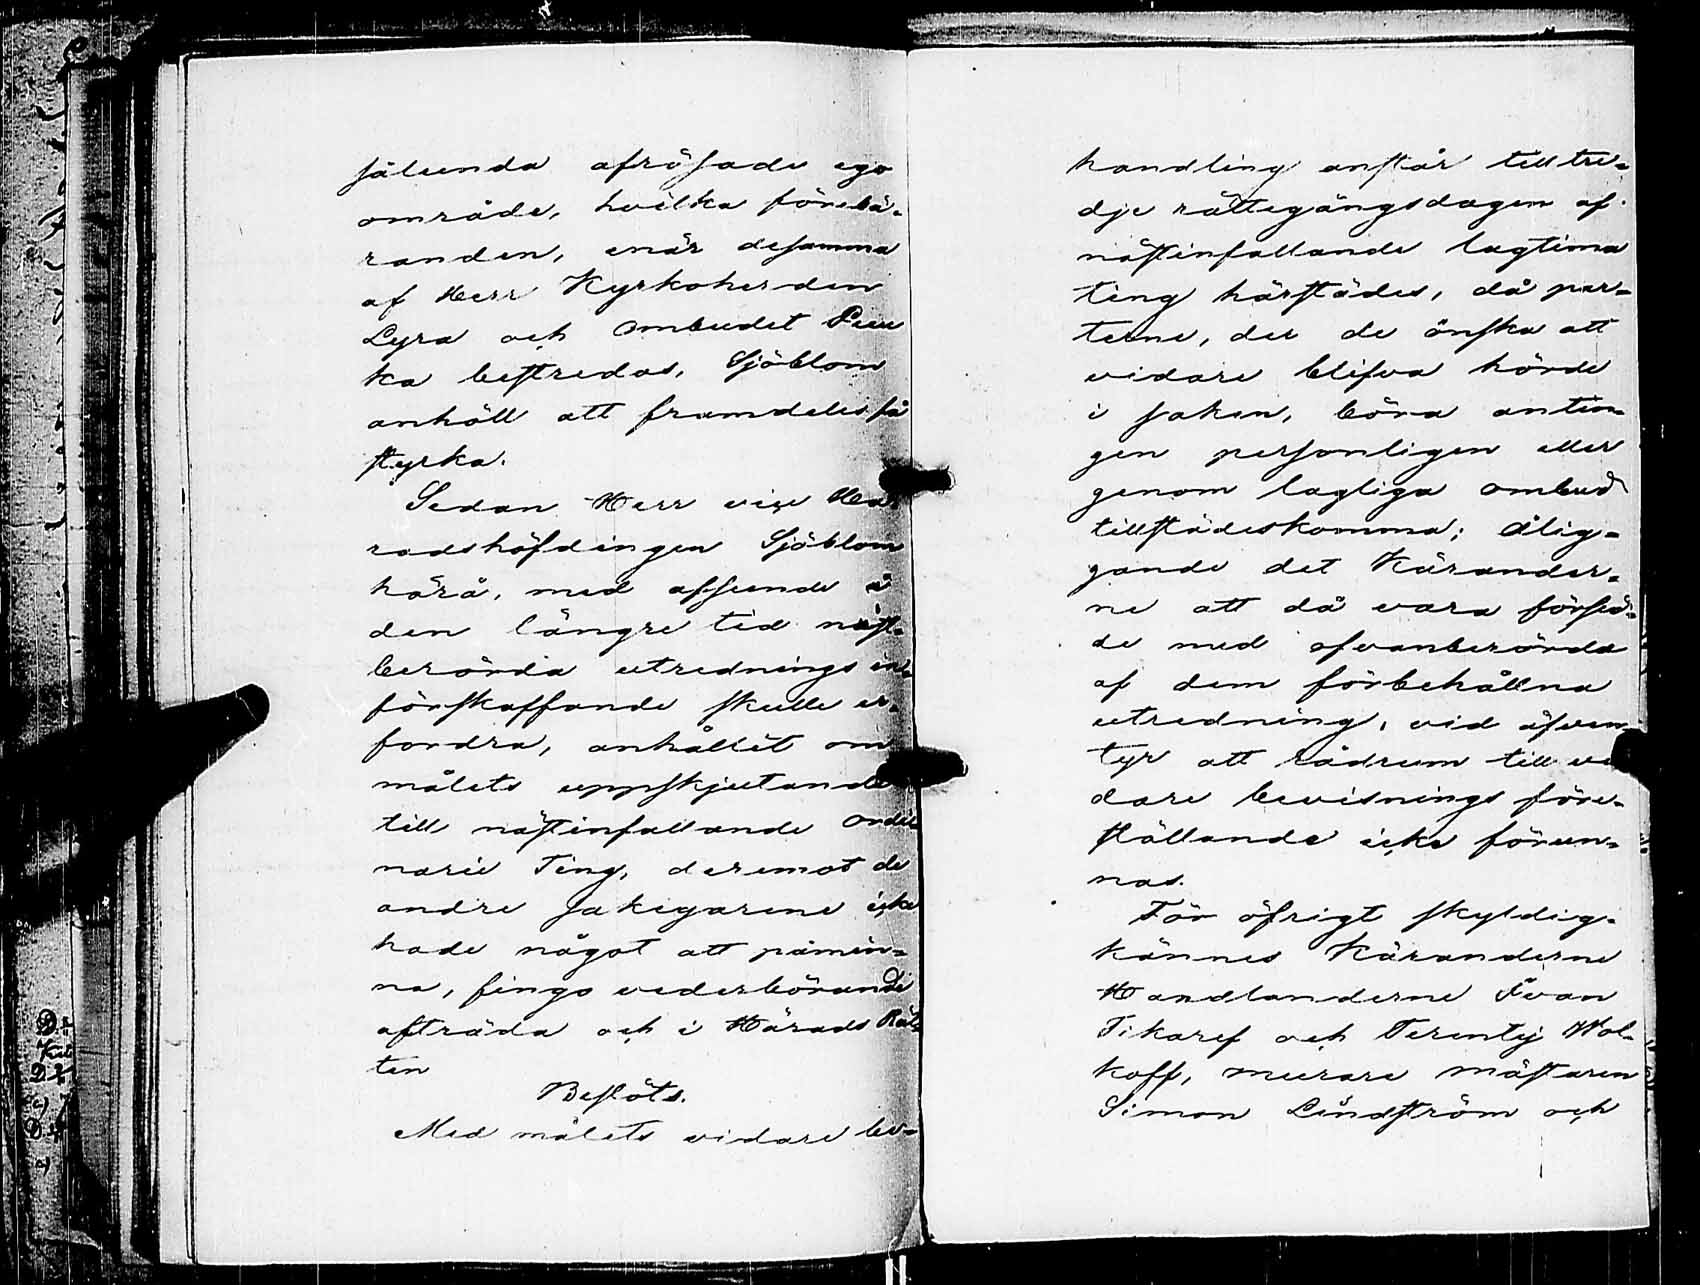 sålunda afrösade ego
område, hvilka förebä-
randen, enär desamma
af Herr Kyrkoherden
Lyra och Ombudet Piru
ka bestredos, Sjöblom
anhöll att framdeles få
styrka.
Sedan Herr vice Hä-
radshöfdingen Sjöblom
härå, med afseende å
den längre tid näst-
berörda utrednings in-
förskaffande skulle er-
fordra, anhållit om
målets uppskjutande
till nästinfallande ordi
narie Ting, deremot de
andre sakegarene icke
hade något att påmin-
na, fingo vederbörande
afträda och i Härads Rät-
ten
Beslöts.
Med målets vidare be-
handling anstår till tre-
dje rättegångsdagen af
nästinfallande lagtima
ting härstädes, då par-
terne, der de önska att
vidare blifva hörde
i saken, böra antin-
gen personligen eller
genom lagliga ombud
tillstädeskomma; ålig-
gande det Kärander-
ne att då vara försed-
de med ofvanberörda
af dem förbehållna
utredning, vid äfven-
tyr att rådrum till vi
dare bevisnings före-
ställande icke förun-
nas.
För öfrigt skyldig-
kännes Käranderne
Handlanderne Ivan
Tikaref och Terenty Wol-
koff, murare mästaren
Simon Lindström och